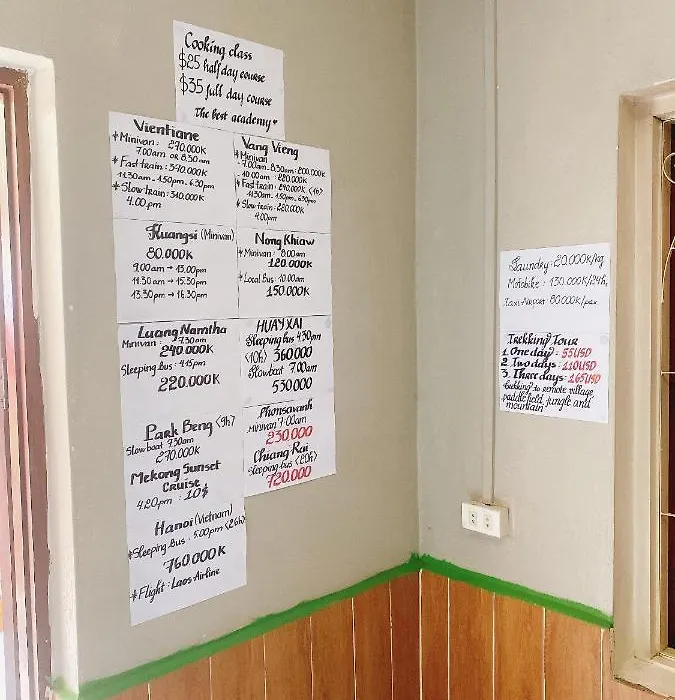 Cooking class
$25 half day course
$35 full day course
The best academy
Vientiane
* Minivan : 270.000K
7.00am or 8.30am
* Fast train : 570.000K
11.30am - 1.50pm - 6.30pm
* Slow train : 310.000K
4.00 pm
Vang Vieng
* Minivan
7.00am - 8.30am : 200.000K
10.00am : 220.000K
* Fast train : <1h>
11.30am - 1.50pm - 6.30pm
* Slow train : 220.000K
4.00pm
Kuangsi (Minivan)
80.000K
9.00am → 13.00pm
11.30am → 15.30pm
13.30pm → 16.30pm
Nong Khiaw
* Minivan : 8.00am
120.000K
* Local Bus : 10.00am
150.000K
Luang Namtha
Minivan : 7.30am
240.000K
Sleeping bus : 4.15pm
220.000K
HUAY XAI
Sleeping bus 4.30pm
<10h> 360000
Slowboat 7.00am
530.000
Park Beng <9h>
Slow boat 7.30am
270.000K
Mekong Sunset
Cruise
4.20pm : 10$
Phonsavanh
Minivan 7:00am
230.000
Chiang Rai
Sleeping bus <20h>
720.000
Hanoi (Vietnam)
* Sleeping Bus : 5:00pm <26h>
760.000K
* Flight : Laos Airline
Laundry : 20.000K/kg
Motobike : 130.000K/24h,
Taxi Airport 80000K/pax
Trekking Tour
1. One day : 55USD
2. Two days : 110USD
3. Three days : 165USD
trekking to remote village,
paddle field, jungle and
mountain